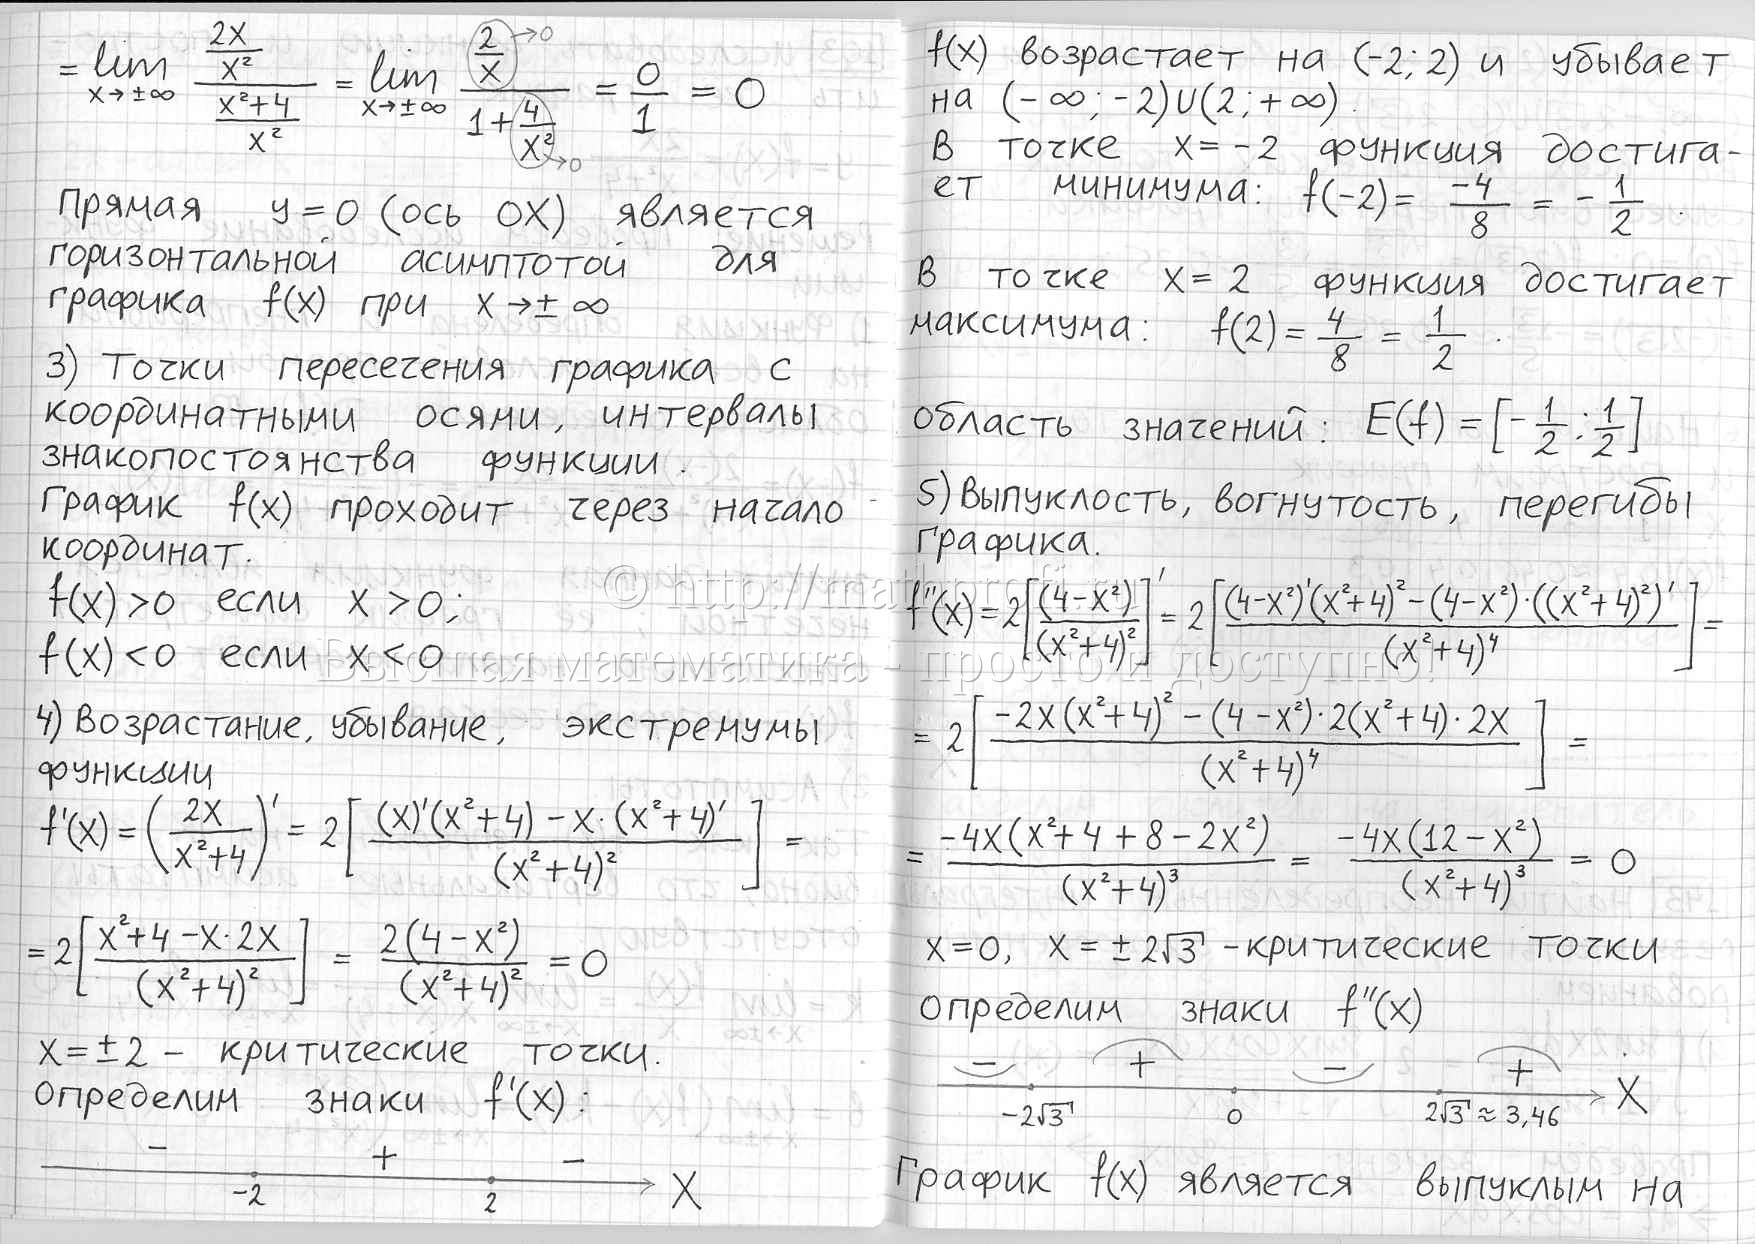 = lim x→±∞ (2x/x²)/((x²+4)/x²) = lim x→±∞ (2/x →0)/(1+4/x² →0) = 0/1 = 0
Прямая y=0 (ось OX) является
горизонтальной асимптотой для
графика f(x) при x→±∞
3) Точки пересечения графика с
координатными осями, интервалы
знакопостоянства функции.
График f(x) проходит через начало
координат.
f(x)>0 если x>0;
f(x)<0 если x<0
4) Возрастание, убывание, экстремумы
функции
f'(x) = (2x/(x²+4))' = 2[((x)'(x²+4) − x·(x²+4)')/(x²+4)²] =
= 2[(x²+4−x·2x)/(x²+4)²] = 2(4−x²)/(x²+4)² = 0
x=±2 – критические точки.
Определим знаки f'(x):
− + −
-2 2 X
f(x) возрастает на (-2; 2) и убывает
на (-∞; -2)∪(2; +∞).
В точке x = -2 функция достига-
ет минимума: f(-2) = -4/8 = -1/2.
В точке x = 2 функция достигает
максимума: f(2) = 4/8 = 1/2.
область значений: E(f) = [-1/2; 1/2]
5) Выпуклость, вогнутость, перегибы
графика.
f''(x) = 2[(4−x²)/(x²+4)²]' = 2[((4−x²)'(x²+4)² − (4−x²)·((x²+4)²)')/(x²+4)⁴] =
= 2[(−2x(x²+4)² − (4−x²)·2(x²+4)·2x)/(x²+4)⁴] =
= −4x(x²+4+8−2x²)/(x²+4)³ = −4x(12−x²)/(x²+4)³ = 0
x=0, x = ±2√3 – критические точки
Определим знаки f''(x)
− + − +
-2√3 0 2√3 ≈ 3,46 X
График f(x) является выпуклым на
© http://mathprofi.ru
Высшая математика - просто и доступно!